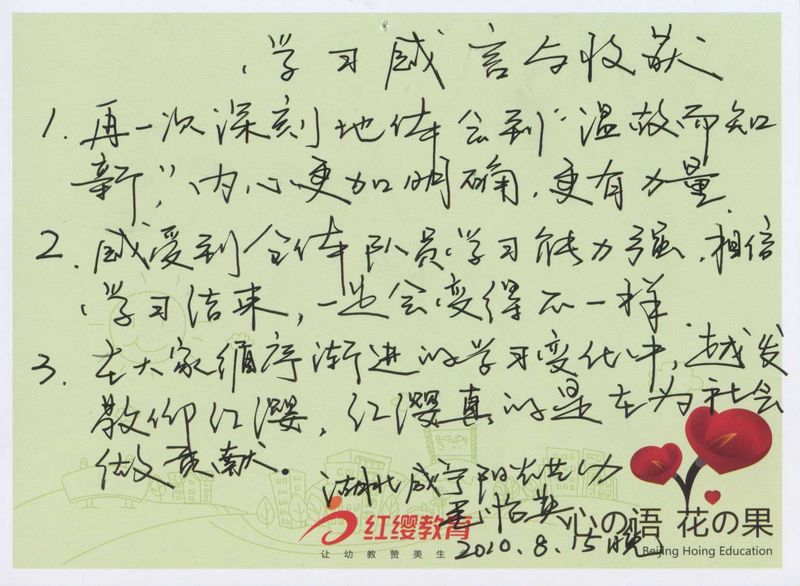 学习感言与收获
1. 再一次深刻地体会到“温故而知
新”,内心更加明确,更有力量
2. 感受到全体队员学习能力强,相信
学习结束,一定会变得不一样
3. 在大家循序渐进的学习变化中,越发
敬仰红缨,红缨真的是在为社会
做贡献。
湖北咸宁阳光幼
怡英
2010.8.15晚
红缨教育
让幼教赞美生
心の语 花の果
Beijing Hoing Education